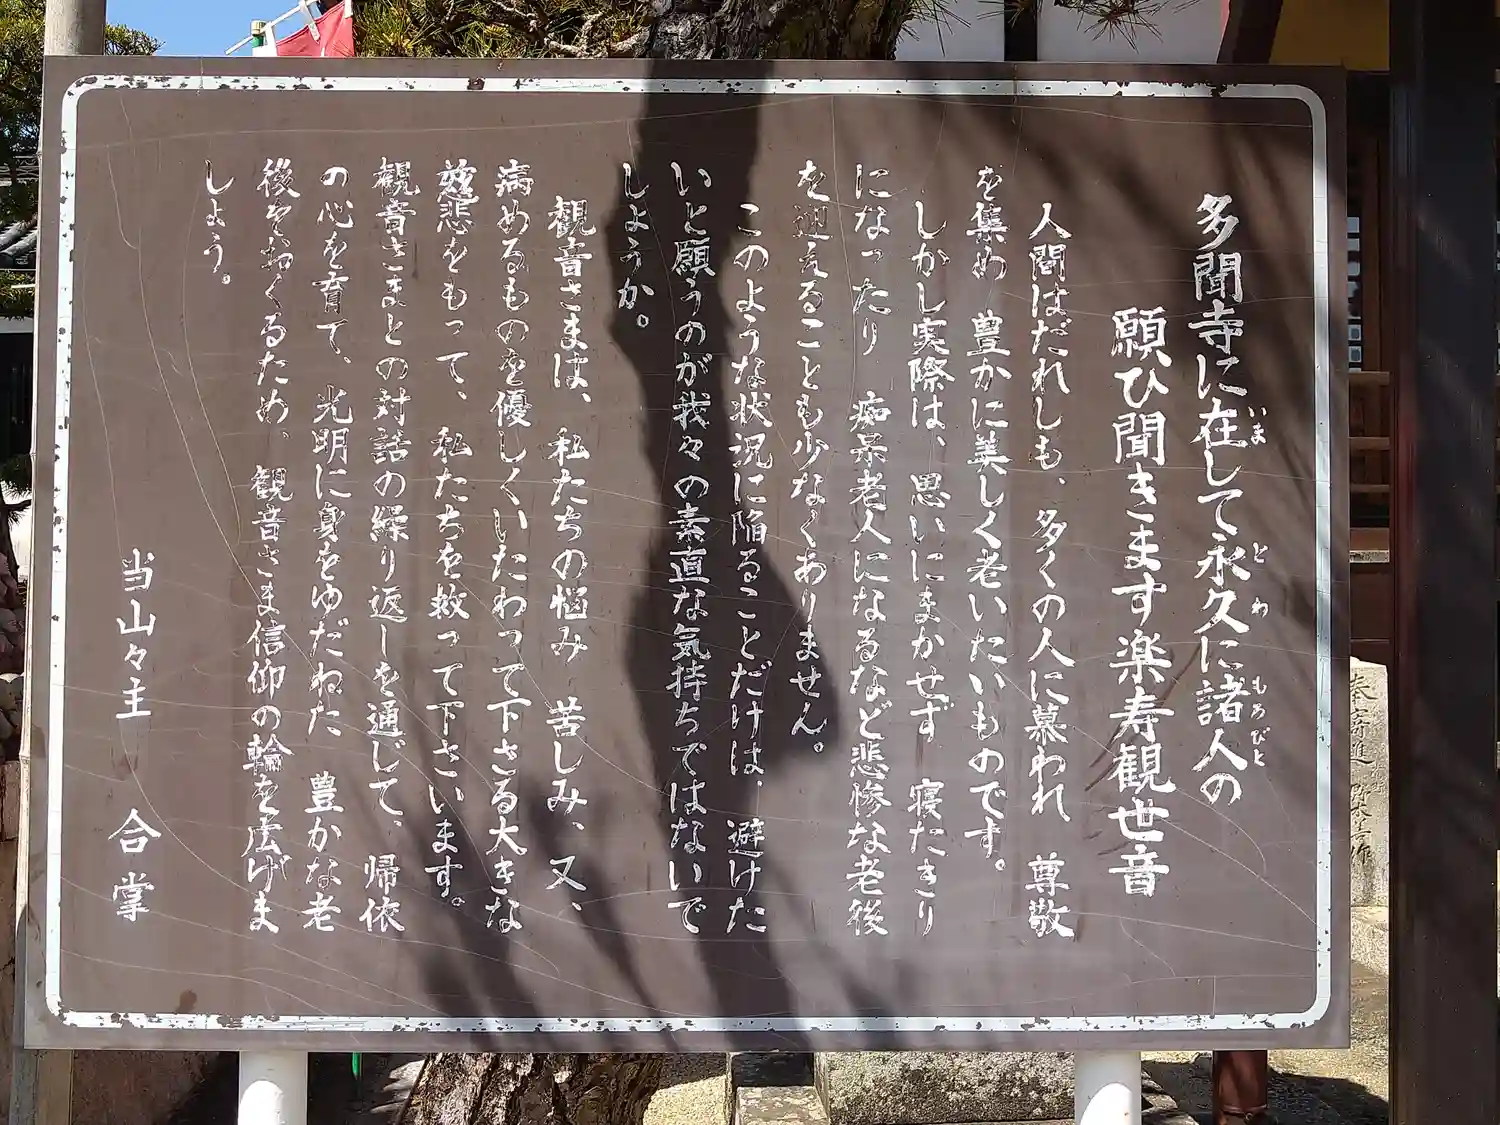 多聞寺に在して永久に諸人の
いま
とわ
もろびと
願ひ聞きます楽寿観世音
人間はだれしも、多くの人に慕われ 尊敬
を集め 豊かに美しく老いたいものです。
しかし実際は、思いにまかせず 寝たきり
になったり 痴呆老人になるなど悲惨な老後
を迎えることも少なくありません。
このような状況に陥ることだけは、避けた
いと願うのが我々の素直な気持ちではないで
しょうか。
観音さまは、私たちの悩み 苦しみ、又、
病めるものを優しくいたわって下さる大きな
慈悲をもって、私たちを救って下さいます。
観音さまとの対話の繰り返しを通じて、帰依
の心を育て、光明に身をゆだねた 豊かな老
後をおくるため、観音さま信仰の輪を広げま
しょう。
当山々主 合掌